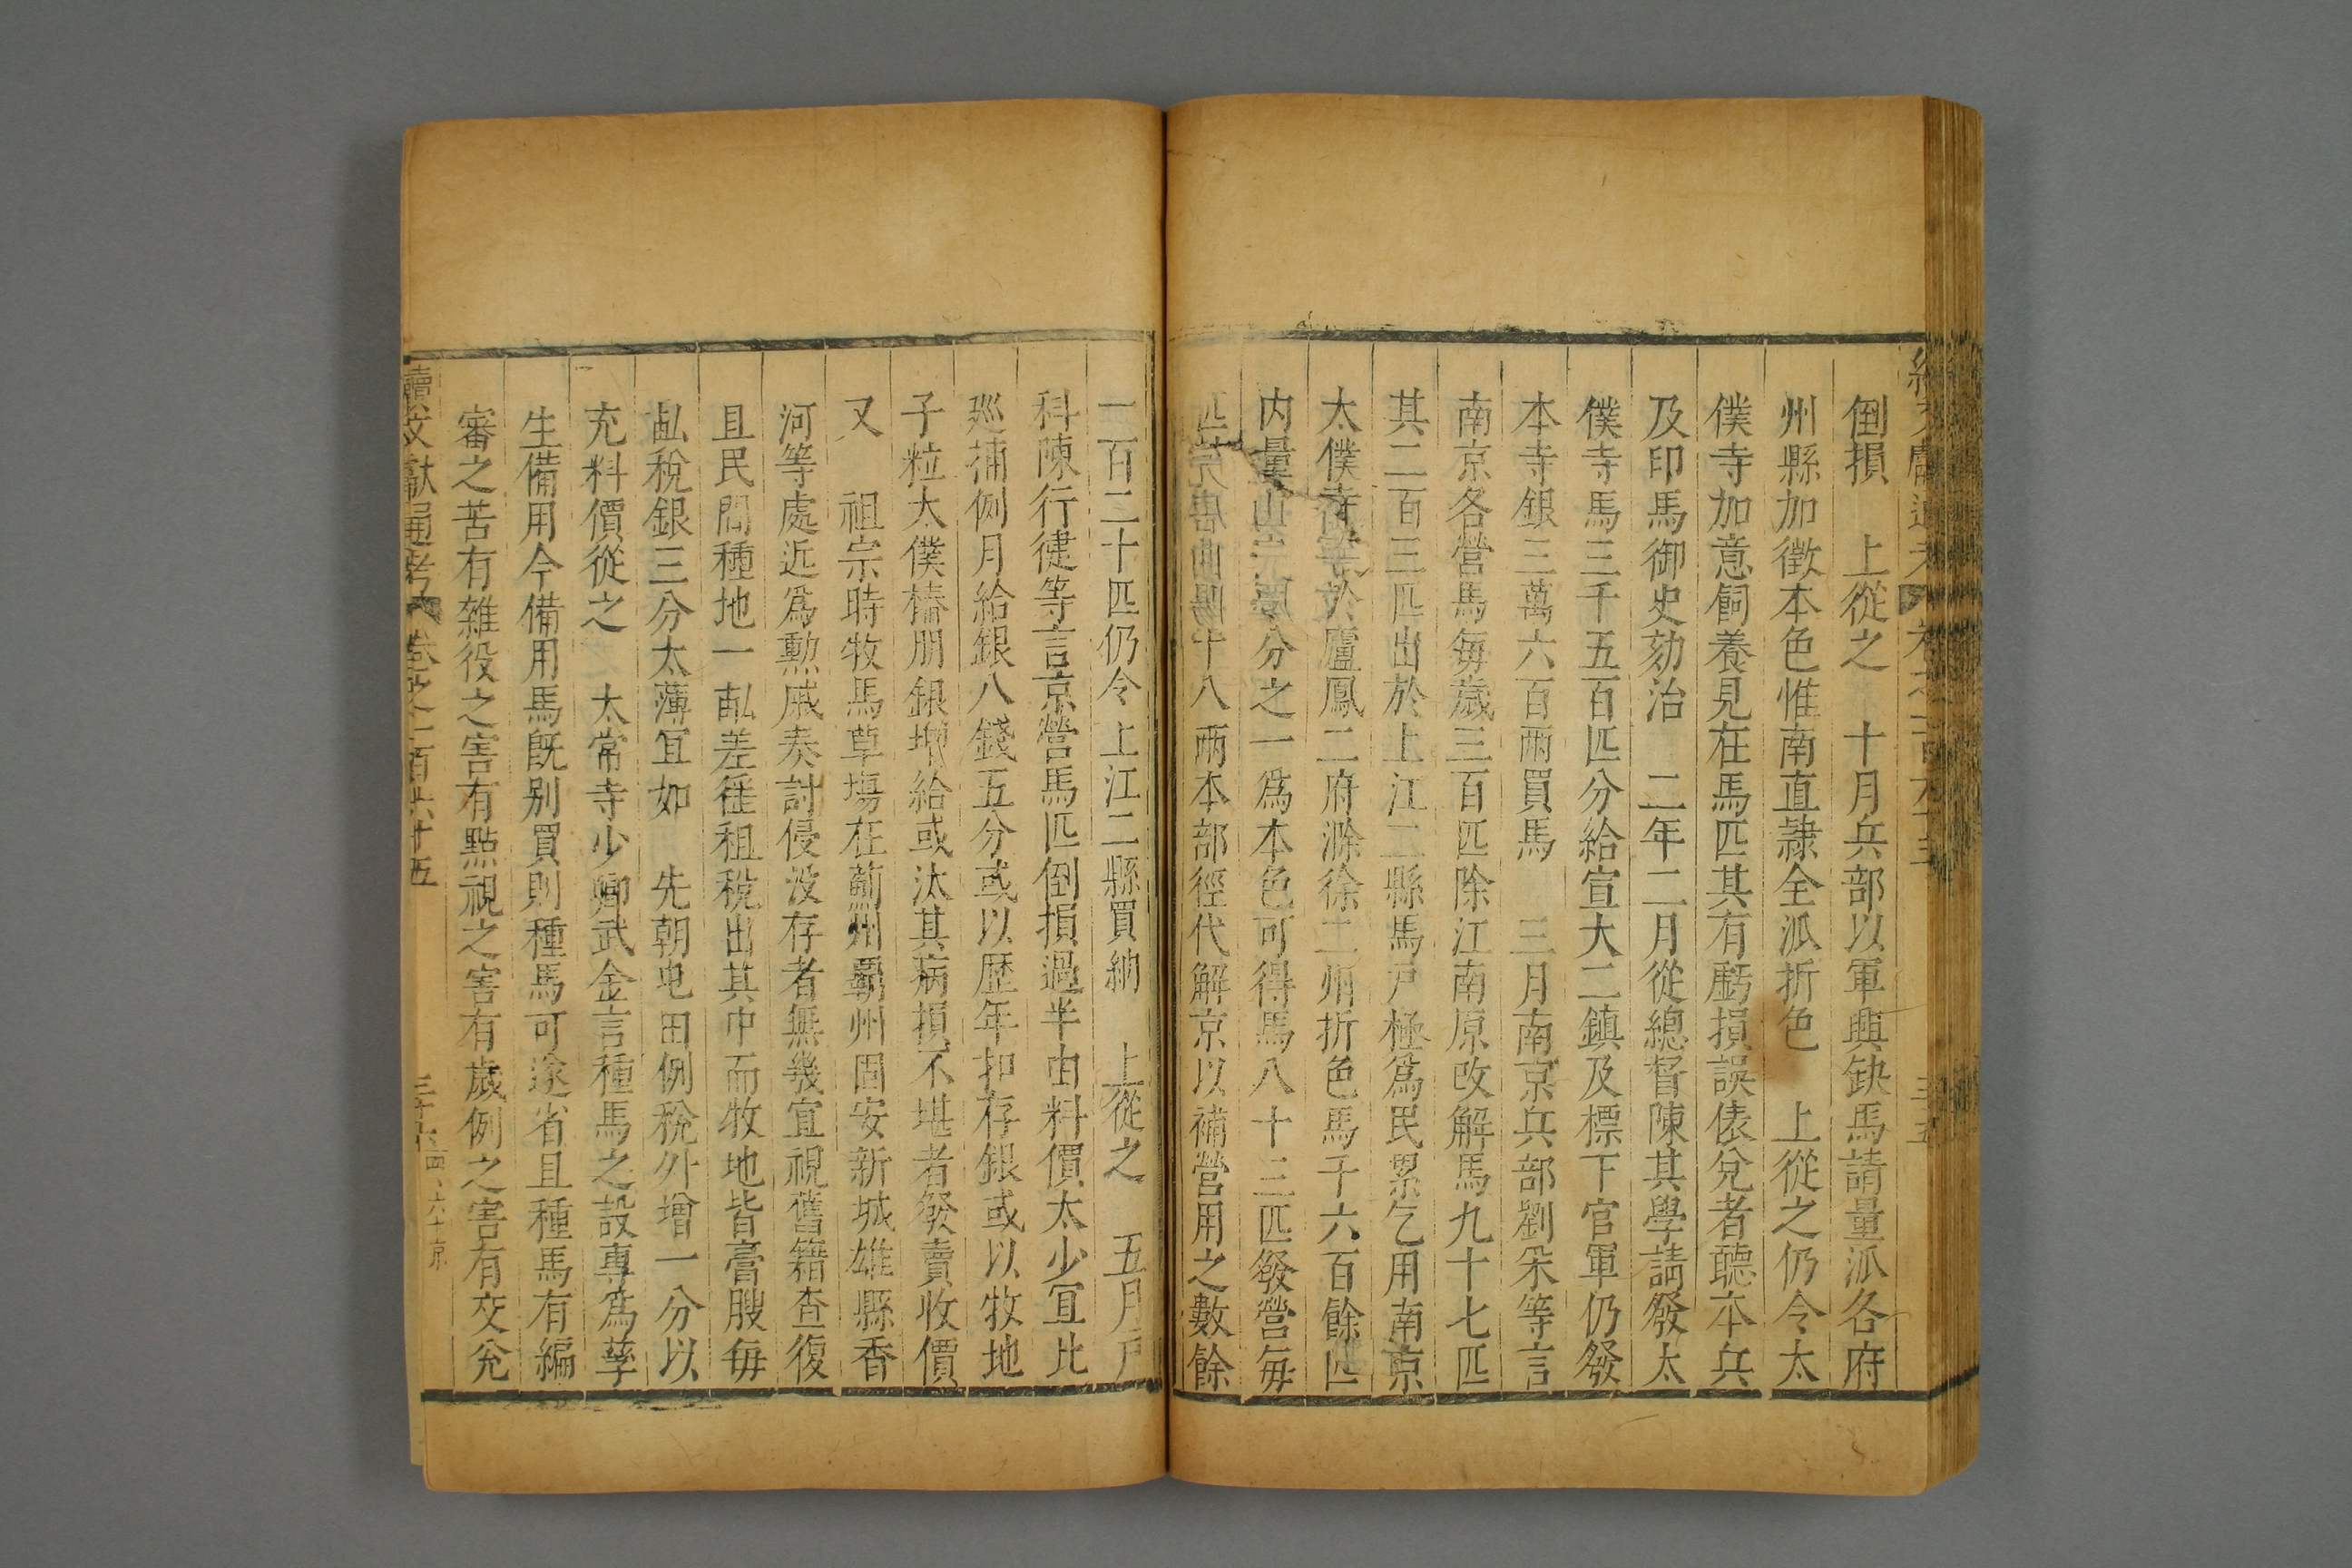 倒損　上從之　十月兵部以軍興缺馬請量派各府
州縣加徵本色惟南直隷全派折色　上從之仍令太
僕寺加意飼養見在馬匹其有虧損誤俵兌者聽本兵
及印馬御史劾治　二年二月從總督陳其學請發太
僕寺馬三千五百匹分給宣大二鎮及標下官軍仍發
本寺銀三萬六百兩買馬　三月南京兵部劉采等言
南京各營馬每歲三百匹除江南原改解馬九十七匹
其二百三匹出於上江二縣馬戶極爲民累乞用南京
太僕寺於廬鳳二府滁徐二州折色馬千六百餘匹
内量分之一爲本色可得馬八十三匹發營每
匹十八兩本部徑代解京以補營用之數餘
一百二十匹仍令上江二縣買納　上從之　五月戶
科陳行健等言京營馬匹倒損過半由料價太少宜比
廵捕例月給銀八錢五分或以歷年扣存銀或以牧地
子粒太僕樁朋銀增給或汰其病損不堪者發賣收價
又　祖宗時牧馬草塲在薊州霸州固安新城雄縣香
河等處近爲勲戚奏討侵没存者無幾宜視舊籍查復
且民間種地一畝差徭租稅出其中而牧地皆膏腴每
畝稅銀三分太薄宜如　先朝屯田例稅外增一分以
充料價從之　太常寺少卿武金言種馬之設專爲孳
生備用今備用馬旣别買則種馬可遂省且種馬有編
審之苦有雜役之害有點視之害有歲例之害有交兌
續文獻通考　卷之一百六十五